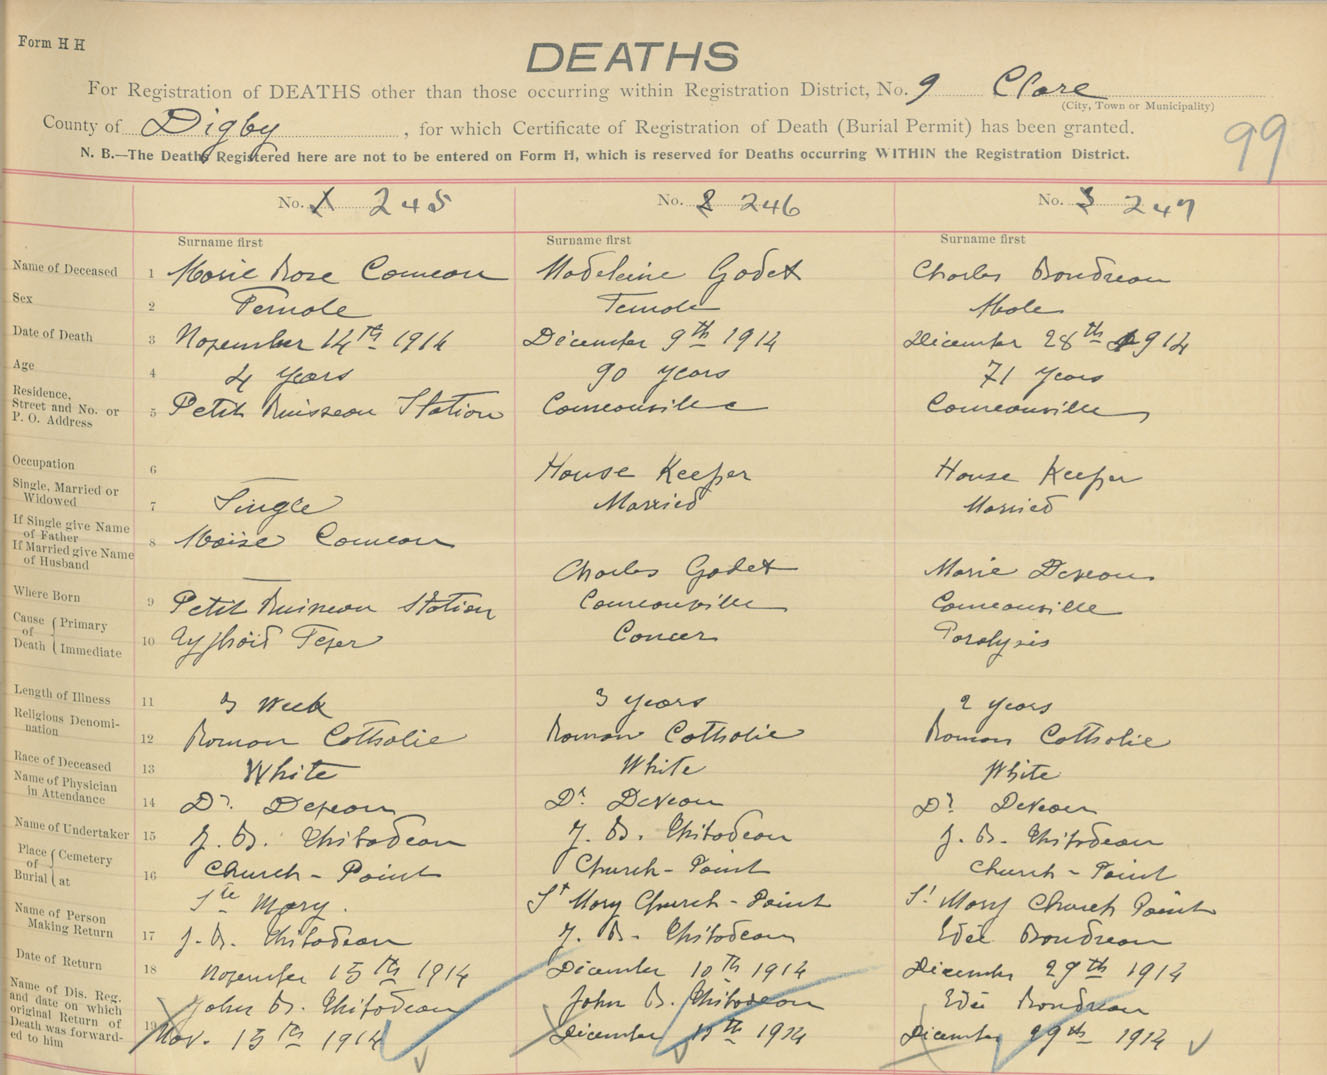 Form H H
DEATHS
For Registration of DEATHS other than those occurring within Registration District, No. 9 Clare
(City, Town or Municipality)
County of Digby, for which Certificate of Registration of Death (Burial Permit) has been granted.
99
N. B.—The Deaths Registered here are not to be entered on Form H, which is reserved for Deaths occurring WITHIN the Registration District.
No. 1 245 No. 2 246 No. 3 247
Surname first Surname first Surname first
Name of Deceased 1 Marie Rose Comeau Madeleine Godet Charles Boudreau
Sex 2 Female Female Male
Date of Death 3 November 14th 1914 Décember 9th 1914 Décember 28th 1914
Age 4 4 years 90 years 71 years
Residence,
Street and No. or
P. O. Address 5 Petit Ruisseau Station Comeauville Comeauville
Occupation 6 — House Keeper House Keeper
Single, Married or
Widowed 7 Single Married Married
If Single give Name
of Father 8 Moise Comeau
If Married give Name
of Husband — Charles Godet Marie Deveau
Where Born 9 Petit Ruisseau Station Comeauville Comeauville
Cause of Death { Primary
{ Immediate 10 Typhoid Fever Cancer Paralysis
Length of Illness 11 3 Week 3 years 2 years
Religious Denomi-
nation 12 Roman Catholic Roman Catholic Roman Catholic
Race of Deceased 13 White White White
Name of Physician
in Attendance 14 Dr. Deveau Dr. Deveau Dr. Deveau
Name of Undertaker 15 J. B. Thibodeau J. B. Thibodeau J. B. Thibodeau
Place of Burial { Cemetery
{ at 16 Church-Point Church-Point Church-Point
Ste Mary. St Mary Church-Point St Mary Church Point
Name of Person
Making Return 17 J. B. Thibodeau J. B. Thibodeau Edéé Boudreau
Date of Return 18 November 15th 1914 Décember 10th 1914 Décember 29th 1914
Name of Dis. Reg.
and date on which
original Return of
Death was forward-
ed to him 19 John B. Thibodeau John B. Thibodeau Edéé Boudreau
Nov. 15th 1914 Décember 1914 Décember 29th 1914